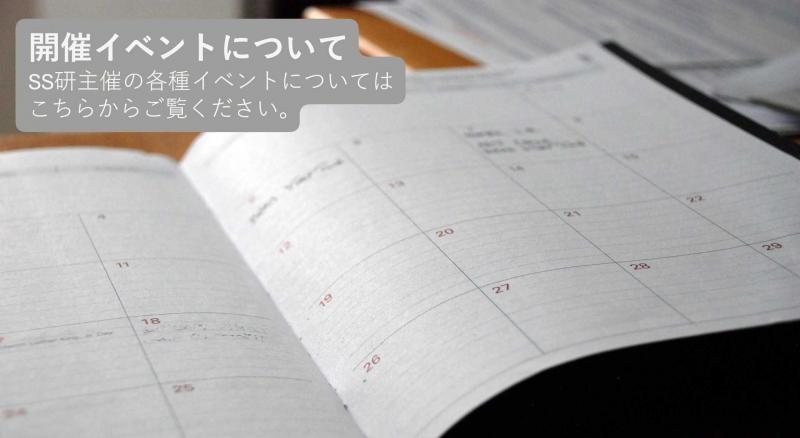 開催イベントについて
SS研主催の各種イベントについては
こちらからご覧ください。
4
11
18
25
24
12
13
14
15
19
20
21
22
26
27
28
29